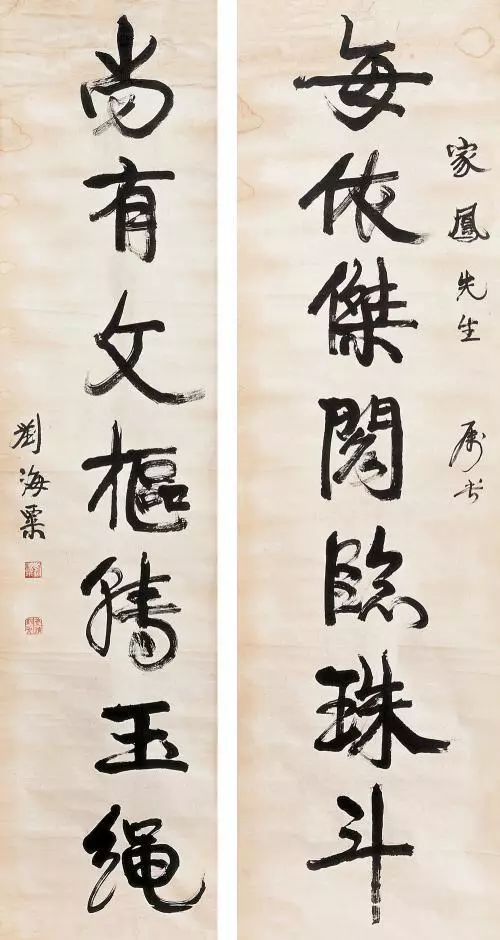 家鳳先生 属書
每依傑閣臨珠斗
尚有文樞騰玉繩
劉海粟